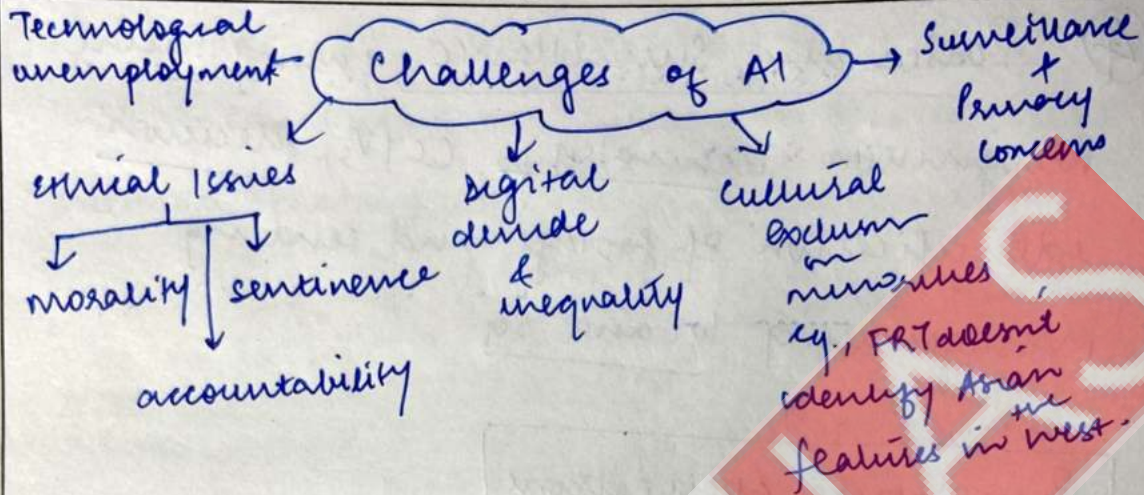 Technological
unemployment
Challenges of AI
Surveillance
+
Privacy
concerns
Ethical Issues
morality
sentinence
accountability
Digital
divide
&
inequality
Cultural
exclusion
on
minorities
eg., FRT doesnt
identify Asian
features in the West.
IAS